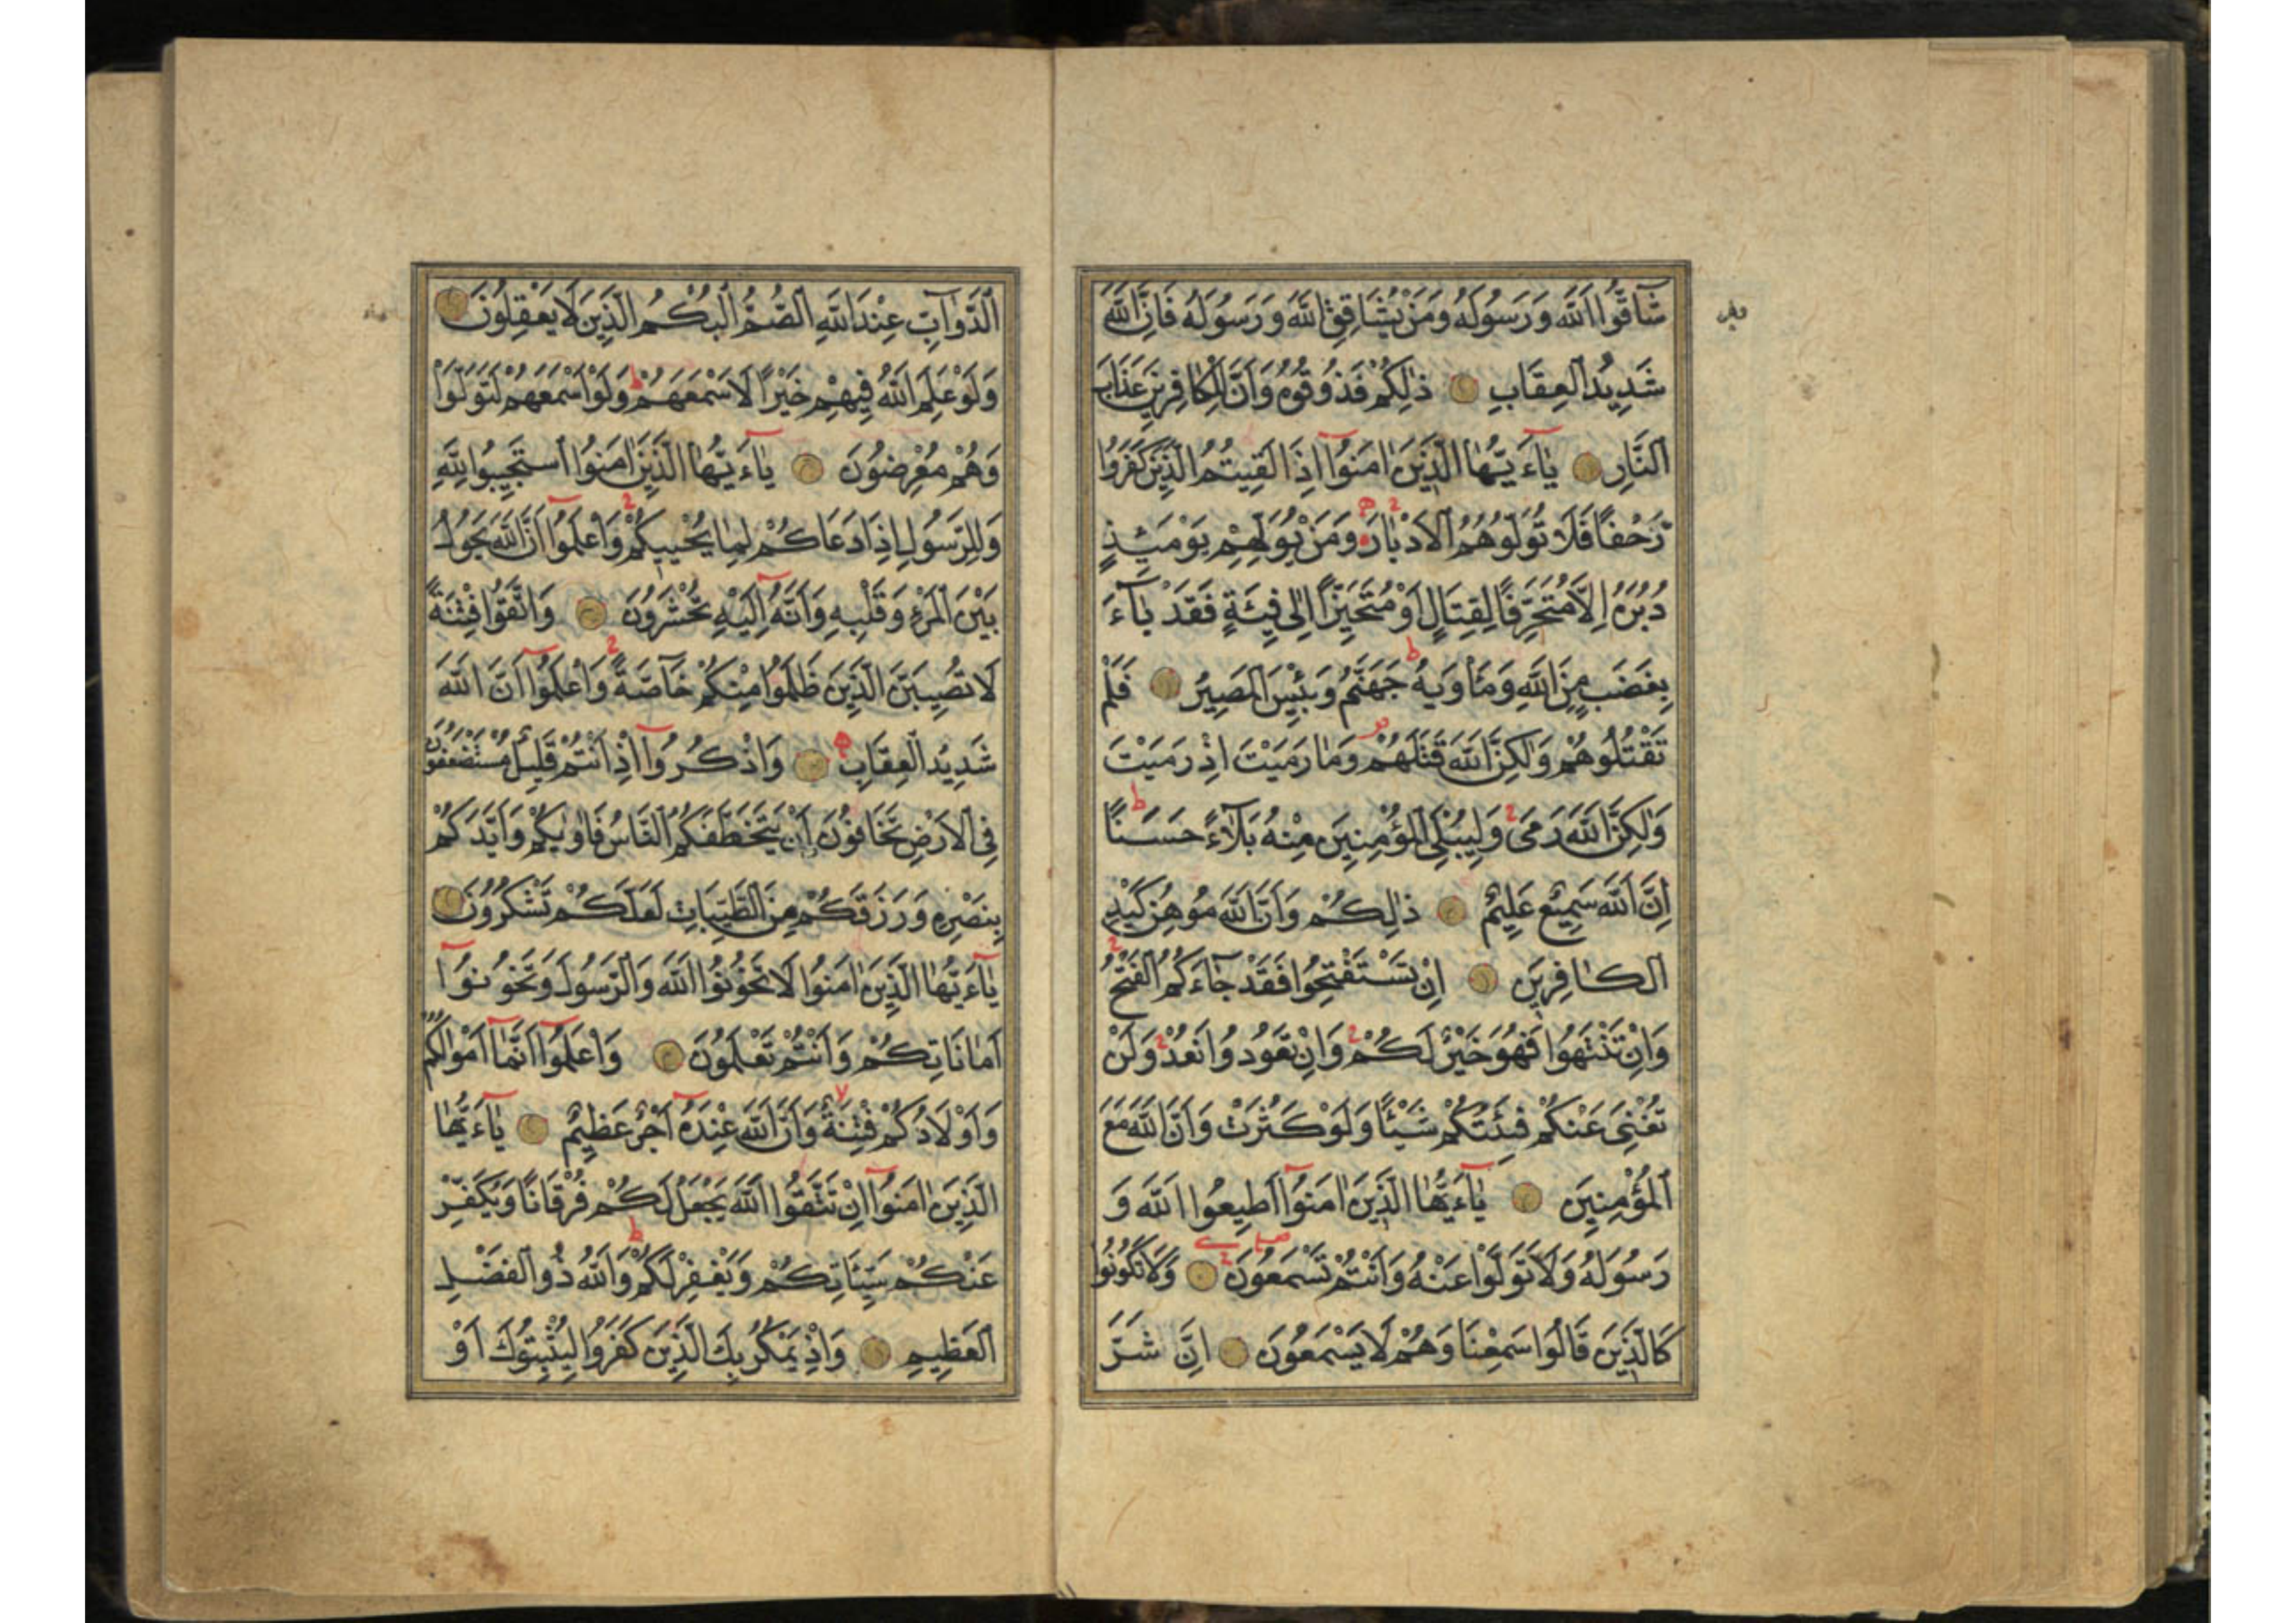 شَاقُّوا اللّٰهَ وَرَسُولَهُ وَمَنْ يُشَاقِقِ اللّٰهَ وَرَسُولَهُ فَاِنَّ اللّٰهَ
شَدِيدُ الْعِقَابِ ذٰلِكُمْ فَذُوقُوهُ وَاَنَّ لِلْكَافِرِينَ عَذَابَ
النَّارِ يَٓاءَيُّهَا الَّذِينَ اٰمَنُٓوا اِذَا لَقِيتُمُ الَّذِينَ كَفَرُوا
زَحْفًا فَلَا تُوَلُّوهُمُ الْاَدْبَارَ وَمَنْ يُوَلِّهِمْ يَوْمَئِذٍ
دُبُرَهُ اِلَّا مُتَحَرِّفًا لِقِتَالٍ اَوْ مُتَحَيِّزًا اِلٰى فِئَةٍ فَقَدْ بَٓاءَ
بِغَضَبٍ مِنَ اللّٰهِ وَمَأْوٰيهُ جَهَنَّمُ وَبِئْسَ الْمَصِيرُ فَلَمْ
تَقْتُلُوهُمْ وَلٰكِنَّ اللّٰهَ قَتَلَهُمْ وَمَا رَمَيْتَ اِذْ رَمَيْتَ
وَلٰكِنَّ اللّٰهَ رَمٰى وَلِيُبْلِيَ الْمُؤْمِنِينَ مِنْهُ بَلَٓاءً حَسَنًا
اِنَّ اللّٰهَ سَمِيعٌ عَلِيمٌ ذٰلِكُمْ وَاَنَّ اللّٰهَ مُوهِنُ كَيْدِ
الْكَافِرِينَ اِنْ تَسْتَفْتِحُوا فَقَدْ جَٓاءَكُمُ الْفَتْحُ
وَاِنْ تَنْتَهُوا فَهُوَ خَيْرٌ لَكُمْ وَاِنْ تَعُودُوا نَعُدْ وَلَنْ
تُغْنِيَ عَنْكُمْ فِئَتُكُمْ شَيْئًا وَلَوْ كَثُرَتْ وَاَنَّ اللّٰهَ مَعَ
الْمُؤْمِنِينَ يَٓاءَيُّهَا الَّذِينَ اٰمَنُٓوا اَطِيعُوا اللّٰهَ وَ
رَسُولَهُ وَلَا تَوَلَّوْا عَنْهُ وَاَنْتُمْ تَسْمَعُونَ وَلَا تَكُونُوا
كَالَّذِينَ قَالُوا سَمِعْنَا وَهُمْ لَا يَسْمَعُونَ اِنَّ شَرَّ
الدَّوَٓابِّ عِنْدَ اللّٰهِ الصُّمُّ الْبُكْمُ الَّذِينَ لَا يَعْقِلُونَ
وَلَوْ عَلِمَ اللّٰهُ فِيهِمْ خَيْرًا لَاَسْمَعَهُمْ وَلَوْ اَسْمَعَهُمْ لَتَوَلَّوْا
وَهُمْ مُعْرِضُونَ يَٓاءَيُّهَا الَّذِينَ اٰمَنُوا اسْتَجِيبُوا لِلّٰهِ
وَلِلرَّسُولِ اِذَا دَعَاكُمْ لِمَا يُحْيِيكُمْ وَاعْلَمُٓوا اَنَّ اللّٰهَ يَحُولُ
بَيْنَ الْمَرْءِ وَقَلْبِهِ وَاَنَّهُٓ اِلَيْهِ تُحْشَرُونَ وَاتَّقُوا فِتْنَةً
لَا تُصِيبَنَّ الَّذِينَ ظَلَمُوا مِنْكُمْ خَٓاصَّةً وَاعْلَمُٓوا اَنَّ اللّٰهَ
شَدِيدُ الْعِقَابِ وَاذْكُرُٓوا اِذْ اَنْتُمْ قَلِيلٌ مُسْتَضْعَفُونَ
فِي الْاَرْضِ تَخَافُونَ اَنْ يَتَخَطَّفَكُمُ النَّاسُ فَاٰوٰيكُمْ وَاَيَّدَكُمْ
بِنَصْرِهِ وَرَزَقَكُمْ مِنَ الطَّيِّبَاتِ لَعَلَّكُمْ تَشْكُرُونَ
يَٓاءَيُّهَا الَّذِينَ اٰمَنُوا لَا تَخُونُوا اللّٰهَ وَالرَّسُولَ وَتَخُونُٓوا
اَمَانَاتِكُمْ وَاَنْتُمْ تَعْلَمُونَ وَاعْلَمُٓوا اَنَّمَٓا اَمْوَالُكُمْ
وَاَوْلَادُكُمْ فِتْنَةٌ وَاَنَّ اللّٰهَ عِنْدَهُٓ اَجْرٌ عَظِيمٌ يَٓاءَيُّهَا
الَّذِينَ اٰمَنُٓوا اِنْ تَتَّقُوا اللّٰهَ يَجْعَلْ لَكُمْ فُرْقَانًا وَيُكَفِّرْ
عَنْكُمْ سَيِّئَاتِكُمْ وَيَغْفِرْ لَكُمْ وَاللّٰهُ ذُو الْفَضْلِ
الْعَظِيمِ وَاِذْ يَمْكُرُ بِكَ الَّذِينَ كَفَرُوا لِيُثْبِتُوكَ اَوْ